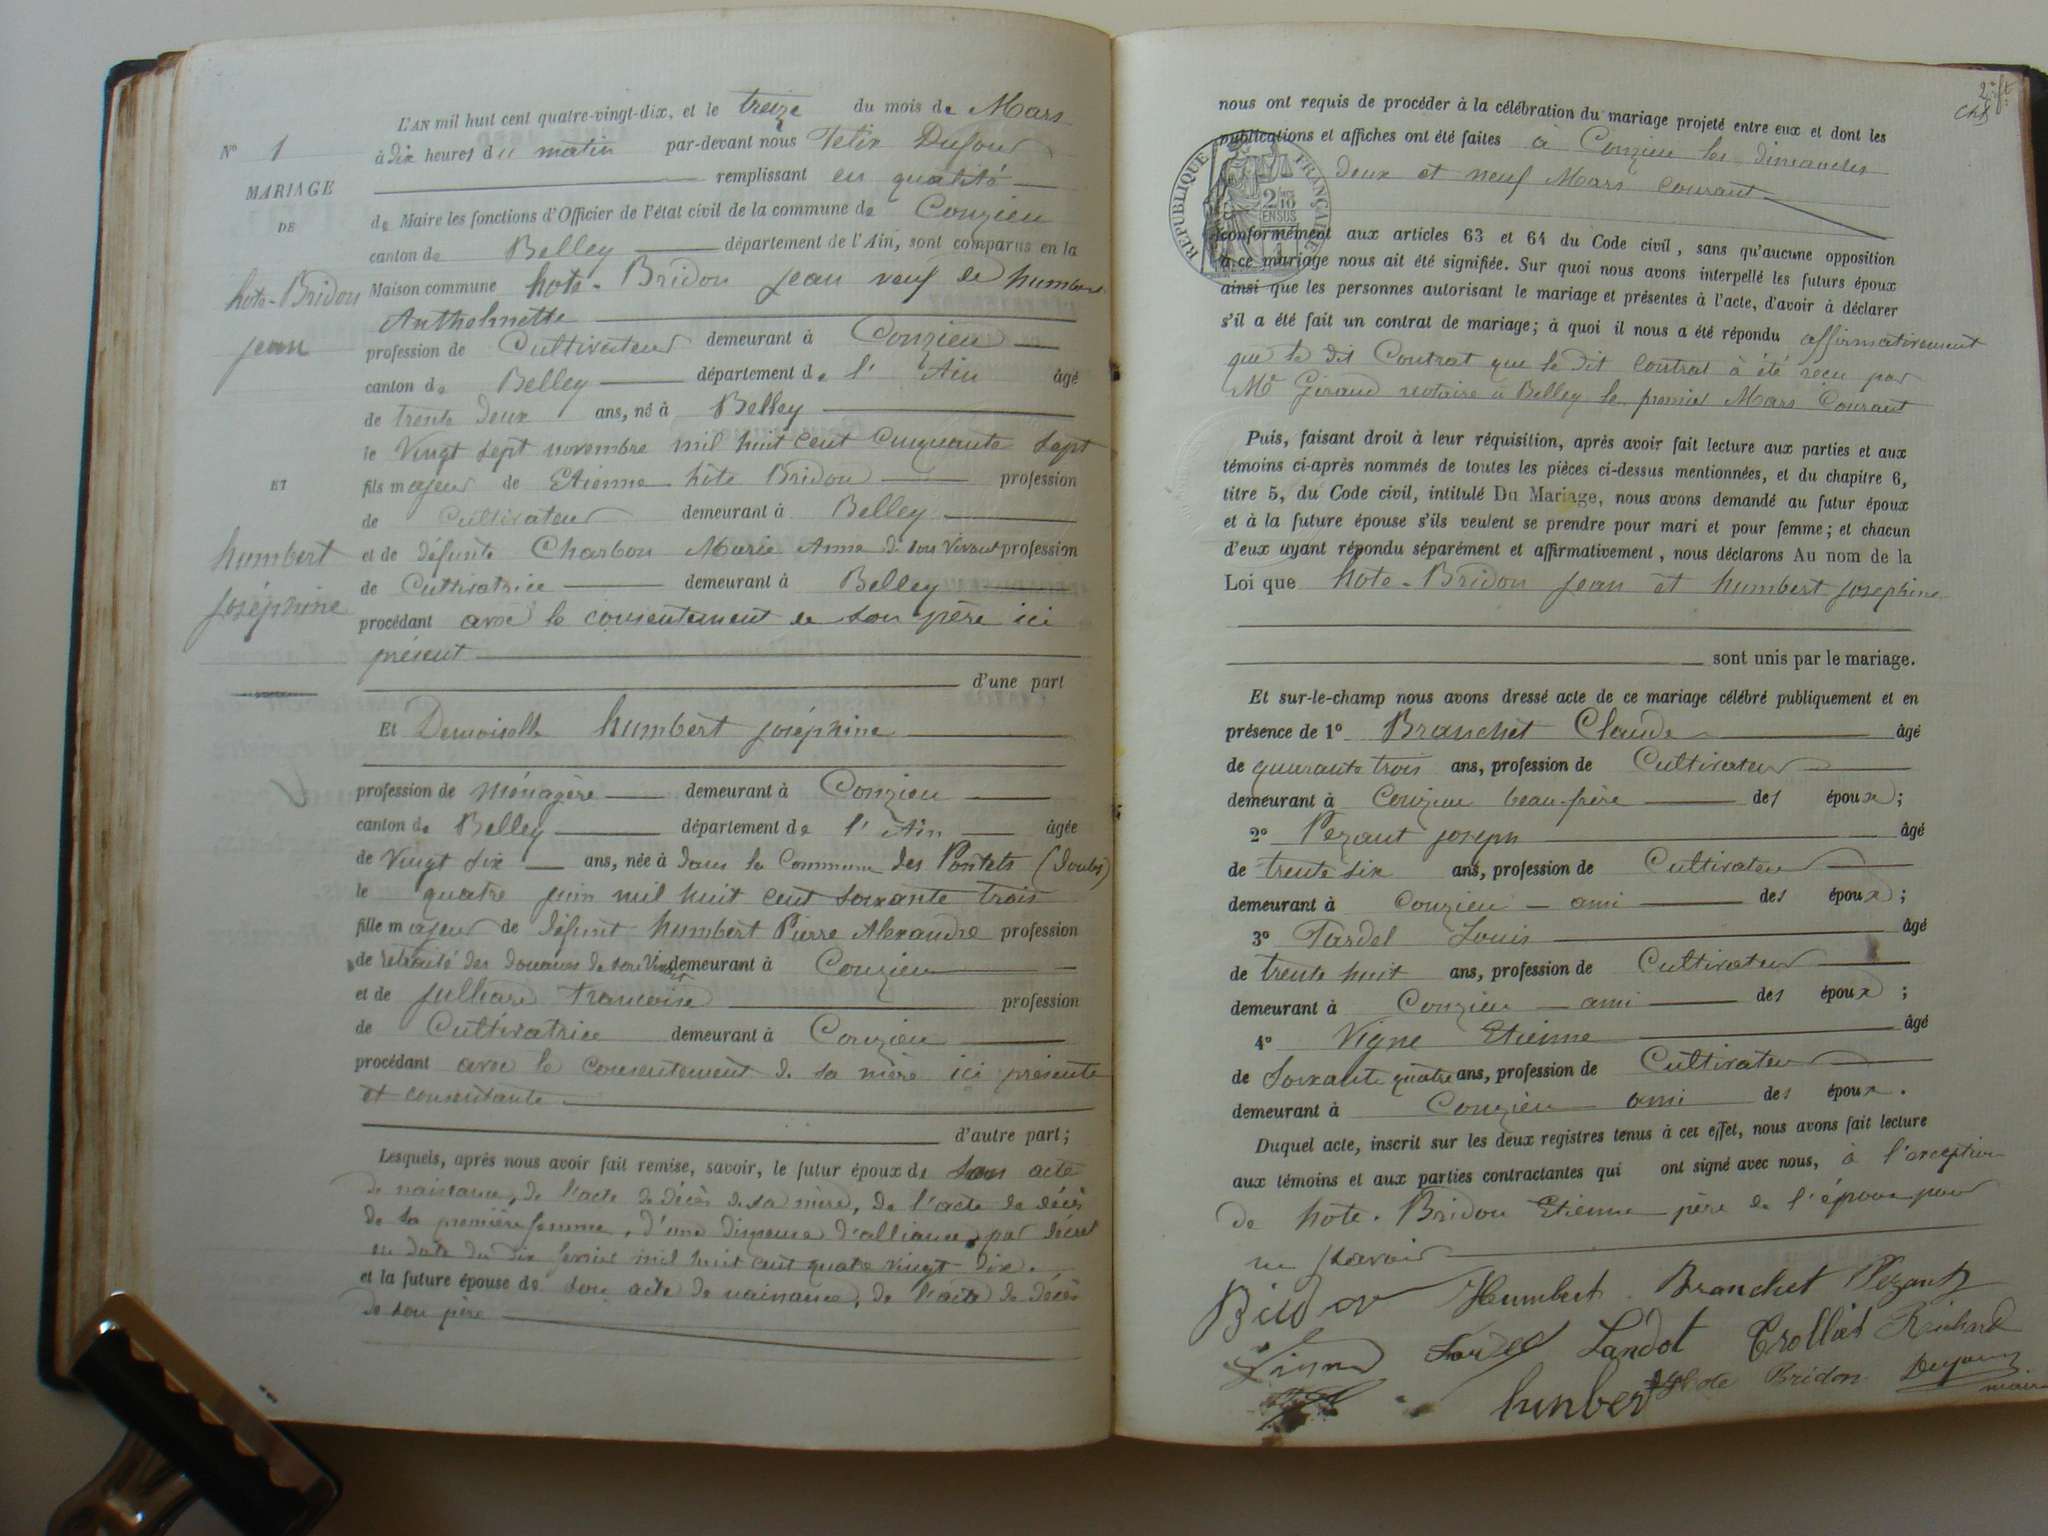 L'AN mil huit cent quatre-vingt-dix, et le treize du mois de Mars
à dix heures du matin par-devant nous Felix Dufour
remplissant en qualité
de Maire les fonctions d'Officier de l'état civil de la commune de Conzieu
canton de Belley département de l'Ain, sont comparus en la
Maison commune hote-Bridon jean veuf de humbert
Anthelmette
profession de Cultivateur demeurant à Conzieu
canton de Belley département de l'Ain âgé
de trente deux ans, né à Belley
le Vingt sept novembre mil huit cent Cinquante sept
fils majeur de Etienne hôte Bridon profession
de Cultivateur demeurant à Belley
et de défunte Charbon Marie Anne de son vivant profession
de Cultivatrice demeurant à Belley
procédant avec le consentement de son père ici
présent
d'une part
Et Demoiselle humbert joséphine
profession de ménagère demeurant à Conzieu
canton de Belley département de l'Ain âgée
de Vingt six ans, née à dans la Commune des Pontets (doubs)
le quatre juin mil huit cent soixante trois
fille majeur de défunt humbert Pierre Alexandre profession
de retraité des douanes de son vivant demeurant à Conzieu
et de julliard francoise profession
de Cultivatrice demeurant à Conzieu
procédant avec le consentement de sa mère ici présente
et consentante
d'autre part;
Lesquels, après nous avoir fait remise, savoir, le futur époux de son acte
de naissance, de l'acte de décès de sa mère, de l'acte de décès
de sa première femme, d'une dispense d'alliance par décret
en date du dix fevrier mil huit cent quatre vingt dix.
et la future épouse de son acte de naissance, de l'acte de décès
de son père
N° 1
MARIAGE
DE
hote-Bridon
jean
ET
humbert
joséphine
2e ft
nous ont requis de procéder à la célébration du mariage projeté entre eux et dont les
publications et affiches ont été faites à Conzieu les dimanches
deux et neuf Mars courant
RÉPUBLIQUE FRANÇAISE
2/10 EN SUS
conformément aux articles 63 et 64 du Code civil, sans qu'aucune opposition
à ce mariage nous ait été signifiée. Sur quoi nous avons interpellé les futurs époux
ainsi que les personnes autorisant le mariage et présentes à l'acte, d'avoir à déclarer
s'il a été fait un contrat de mariage; à quoi il nous a été répondu affirmativement
que le dit Contrat que le dit contrat à été reçu par
Me Giraud notaire à Belley le premier Mars Courant
Puis, faisant droit à leur réquisition, après avoir fait lecture aux parties et aux
témoins ci-après nommés de toutes les pièces ci-dessus mentionnées, et du chapitre 6,
titre 5, du Code civil, intitulé Du Mariage, nous avons demandé au futur époux
et à la future épouse s'ils veulent se prendre pour mari et pour femme; et chacun
d'eux ayant répondu séparément et affirmativement, nous déclarons Au nom de la
Loi que hote-Bridon jean et humbert joséphine
sont unis par le mariage.
Et sur-le-champ nous avons dressé acte de ce mariage célébré publiquement et en
présence de 1° Branchet Claude âgé
de quarante trois ans, profession de Cultivateur
demeurant à Conzieu beau-frère des époux;
2° Pezant joseph âgé
de trente six ans, profession de Cultivateur
demeurant à Conzieu ami des époux;
3° Tardel Louis âgé
de trente huit ans, profession de Cultivateur
demeurant à Conzieu ami des époux;
4° Vigne Etienne âgé
de soixante quatre ans, profession de Cultivateur
demeurant à Conzieu ami des époux.
Duquel acte, inscrit sur les deux registres tenus à cet effet, nous avons fait lecture
aux témoins et aux parties contractantes qui ont signé avec nous, à l'exception
de hote-Bridon Etienne père de l'époux pour
ne savoir
Bridon Humbert Branchet Pezant
Vigne Tardel Landot Trolliet Richard
humbert Hote Bridon Dufour
maire